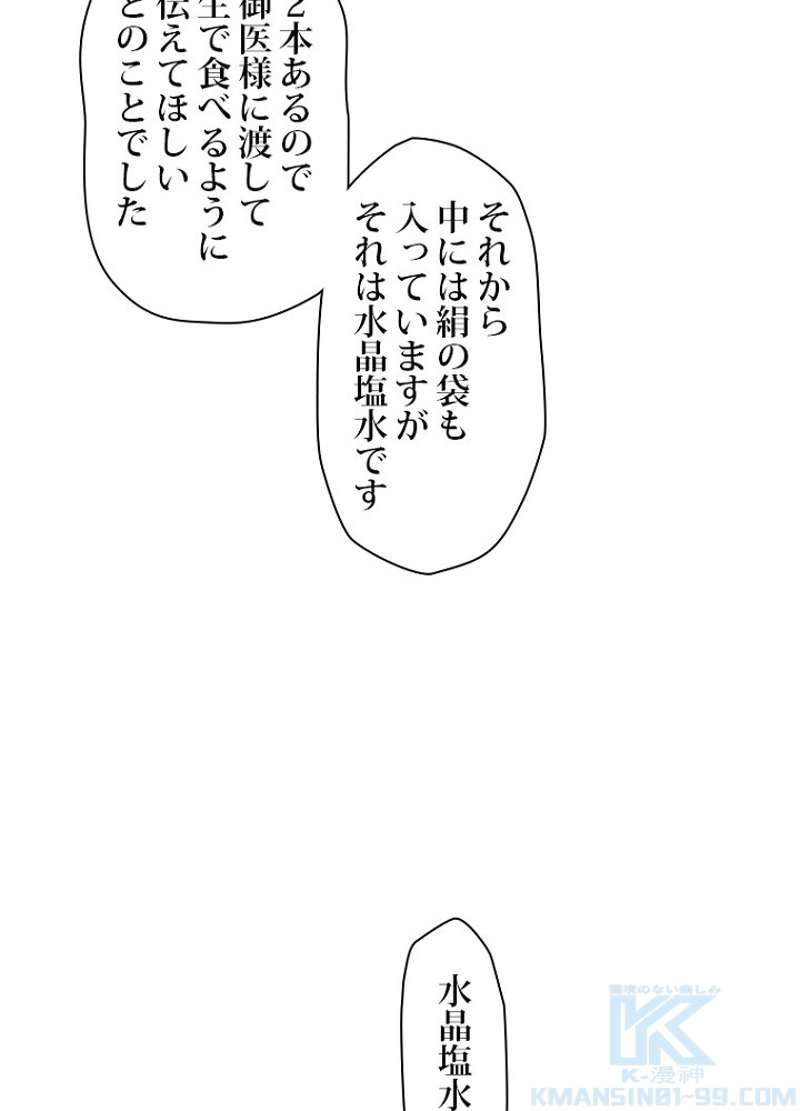 2本あるので
御医様に渡して
生で食べるように
伝えてほしい
とのことでした
それから
中には絹の袋も
入っていますが
それは水晶塩水です
水晶塩水
環境のない楽しみ
K-漫神
KMANSIN01-99.COM